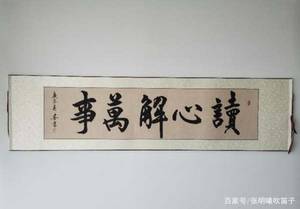 讀心解萬事
百家号/张明曦吹笛子